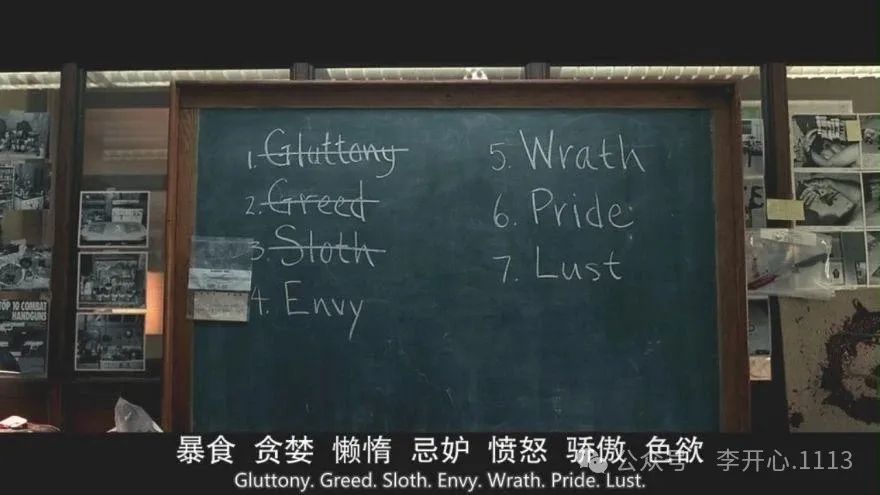 1. Gluttony
2. Greed
3. Sloth
4. Envy
5. Wrath
6. Pride
7. Lust
TOP 10 COMBAT
HANDGUNS
暴食 贪婪 懒惰 忌妒 愤怒 骄傲 色欲
Gluttony. Greed. Sloth. Envy. Wrath. Pride. Lust.
公众号 李开心.1113